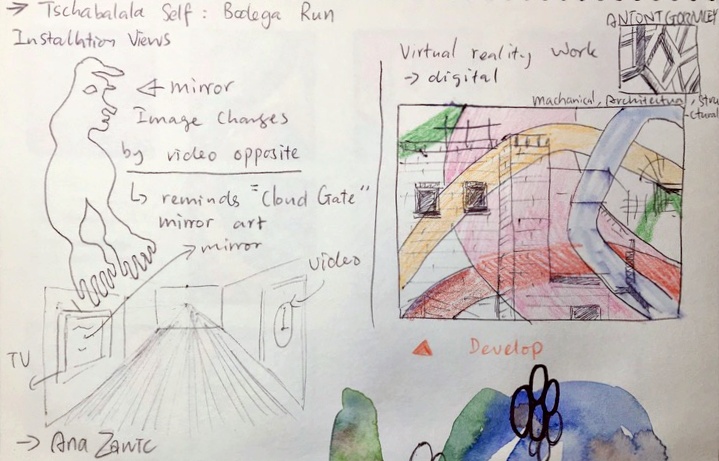 → Tschabalala Self : Bodega Run
Installtion Views
mirror
Image Changes
by video opposite
reminds "Cloud Gate"
mirror art
mirror
video
TV
→ Ana Zanic
ANTONY GORMLEY
Virtual reality work
→ digital
machanical, Architectual, stru
-ctural
Develop